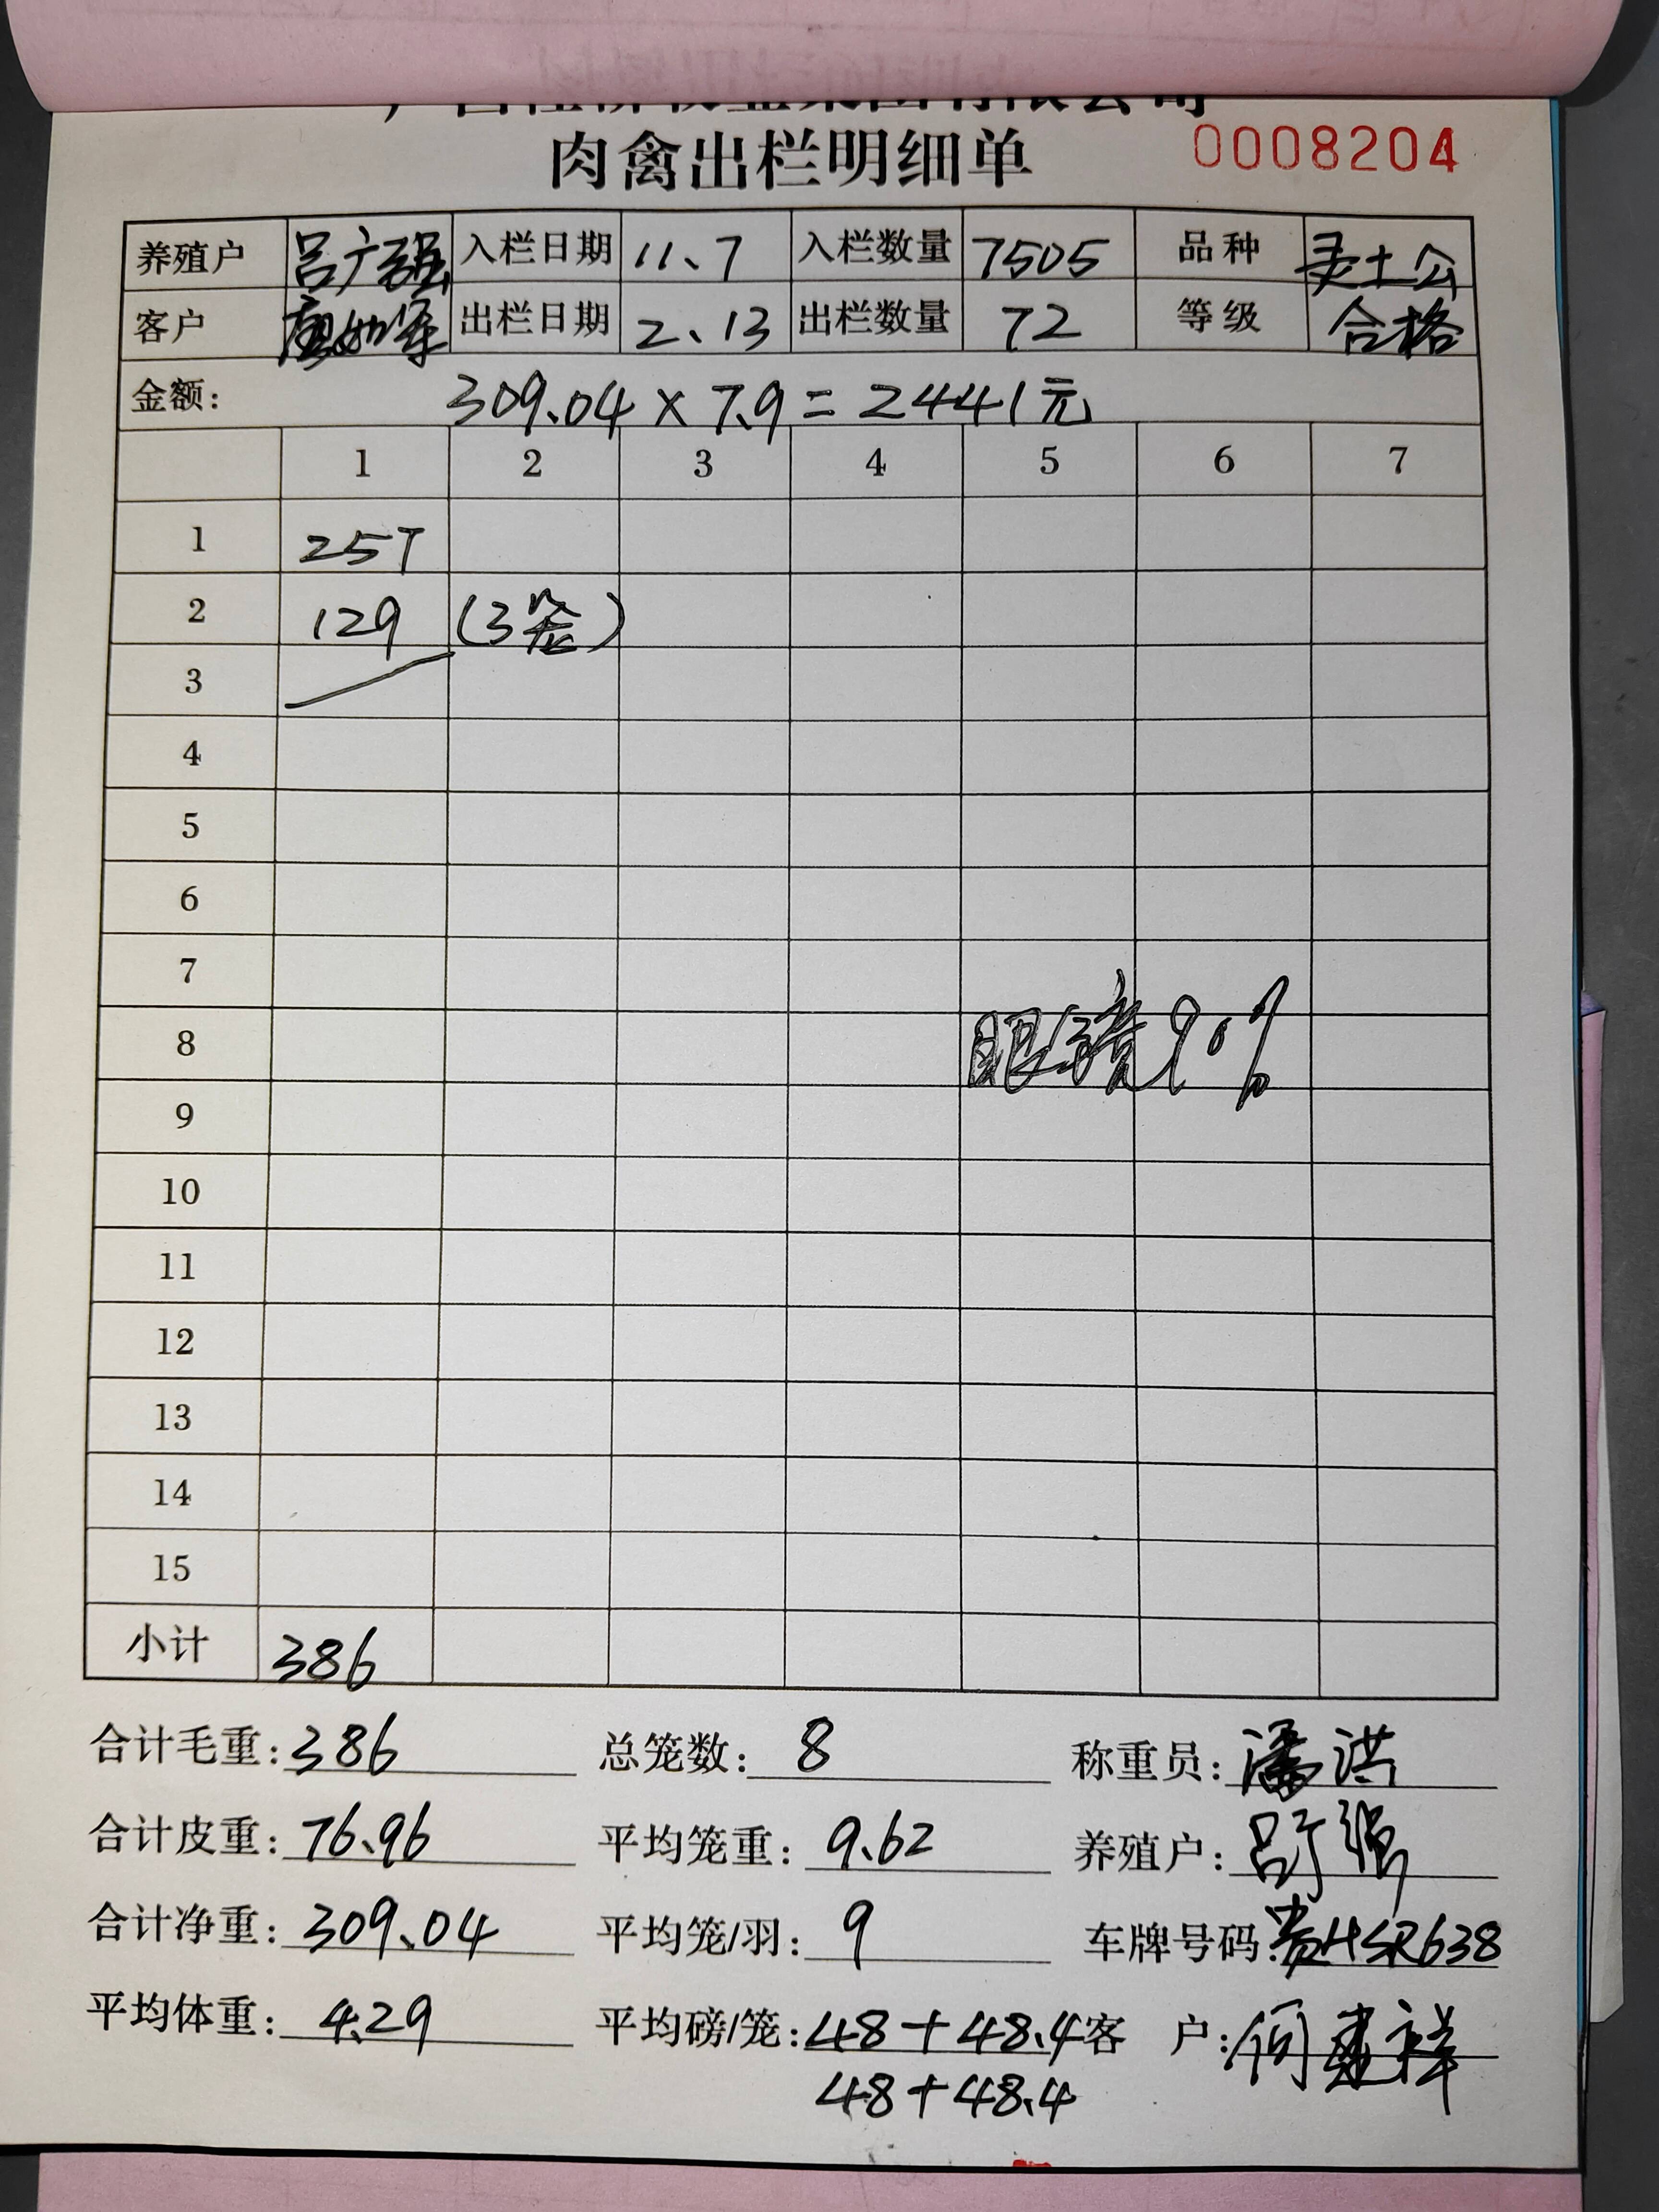 肉禽出栏明细单 0008204
养殖户 吕广强 入栏日期 11.7 入栏数量 7505 品种 灵土公
客户 出栏日期 2.13 出栏数量 72 等级 合格
金额: 309.04 × 7.9 = 2441元
1 2 3 4 5 6 7
1 257
2 129 (3笼)
3
4
5
6
7
8 眼镜90%
9
10
11
12
13
14
15
小计 386
合计毛重: 386 总笼数: 8 称重员: 潘洪
合计皮重: 76.96 平均笼重: 9.62 养殖户: 吕广强
合计净重: 309.04 平均笼/羽: 9 车牌号码: 贵HSR638
平均体重: 4.29 平均磅/笼: 48+48.4 客户: 何建祥
48+48.4